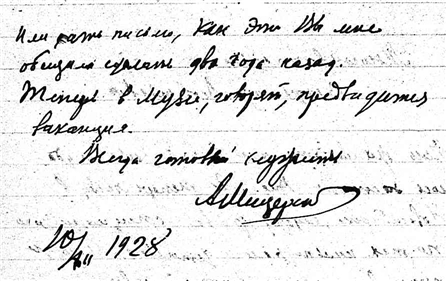 или дать письмо, как это Вы мне
обещали сделать два года назад.
Теперь в Музее, говорят, предвидится
вакансия.
Всегда готовый к услугам
А. Мещеряков
10/XII 1928